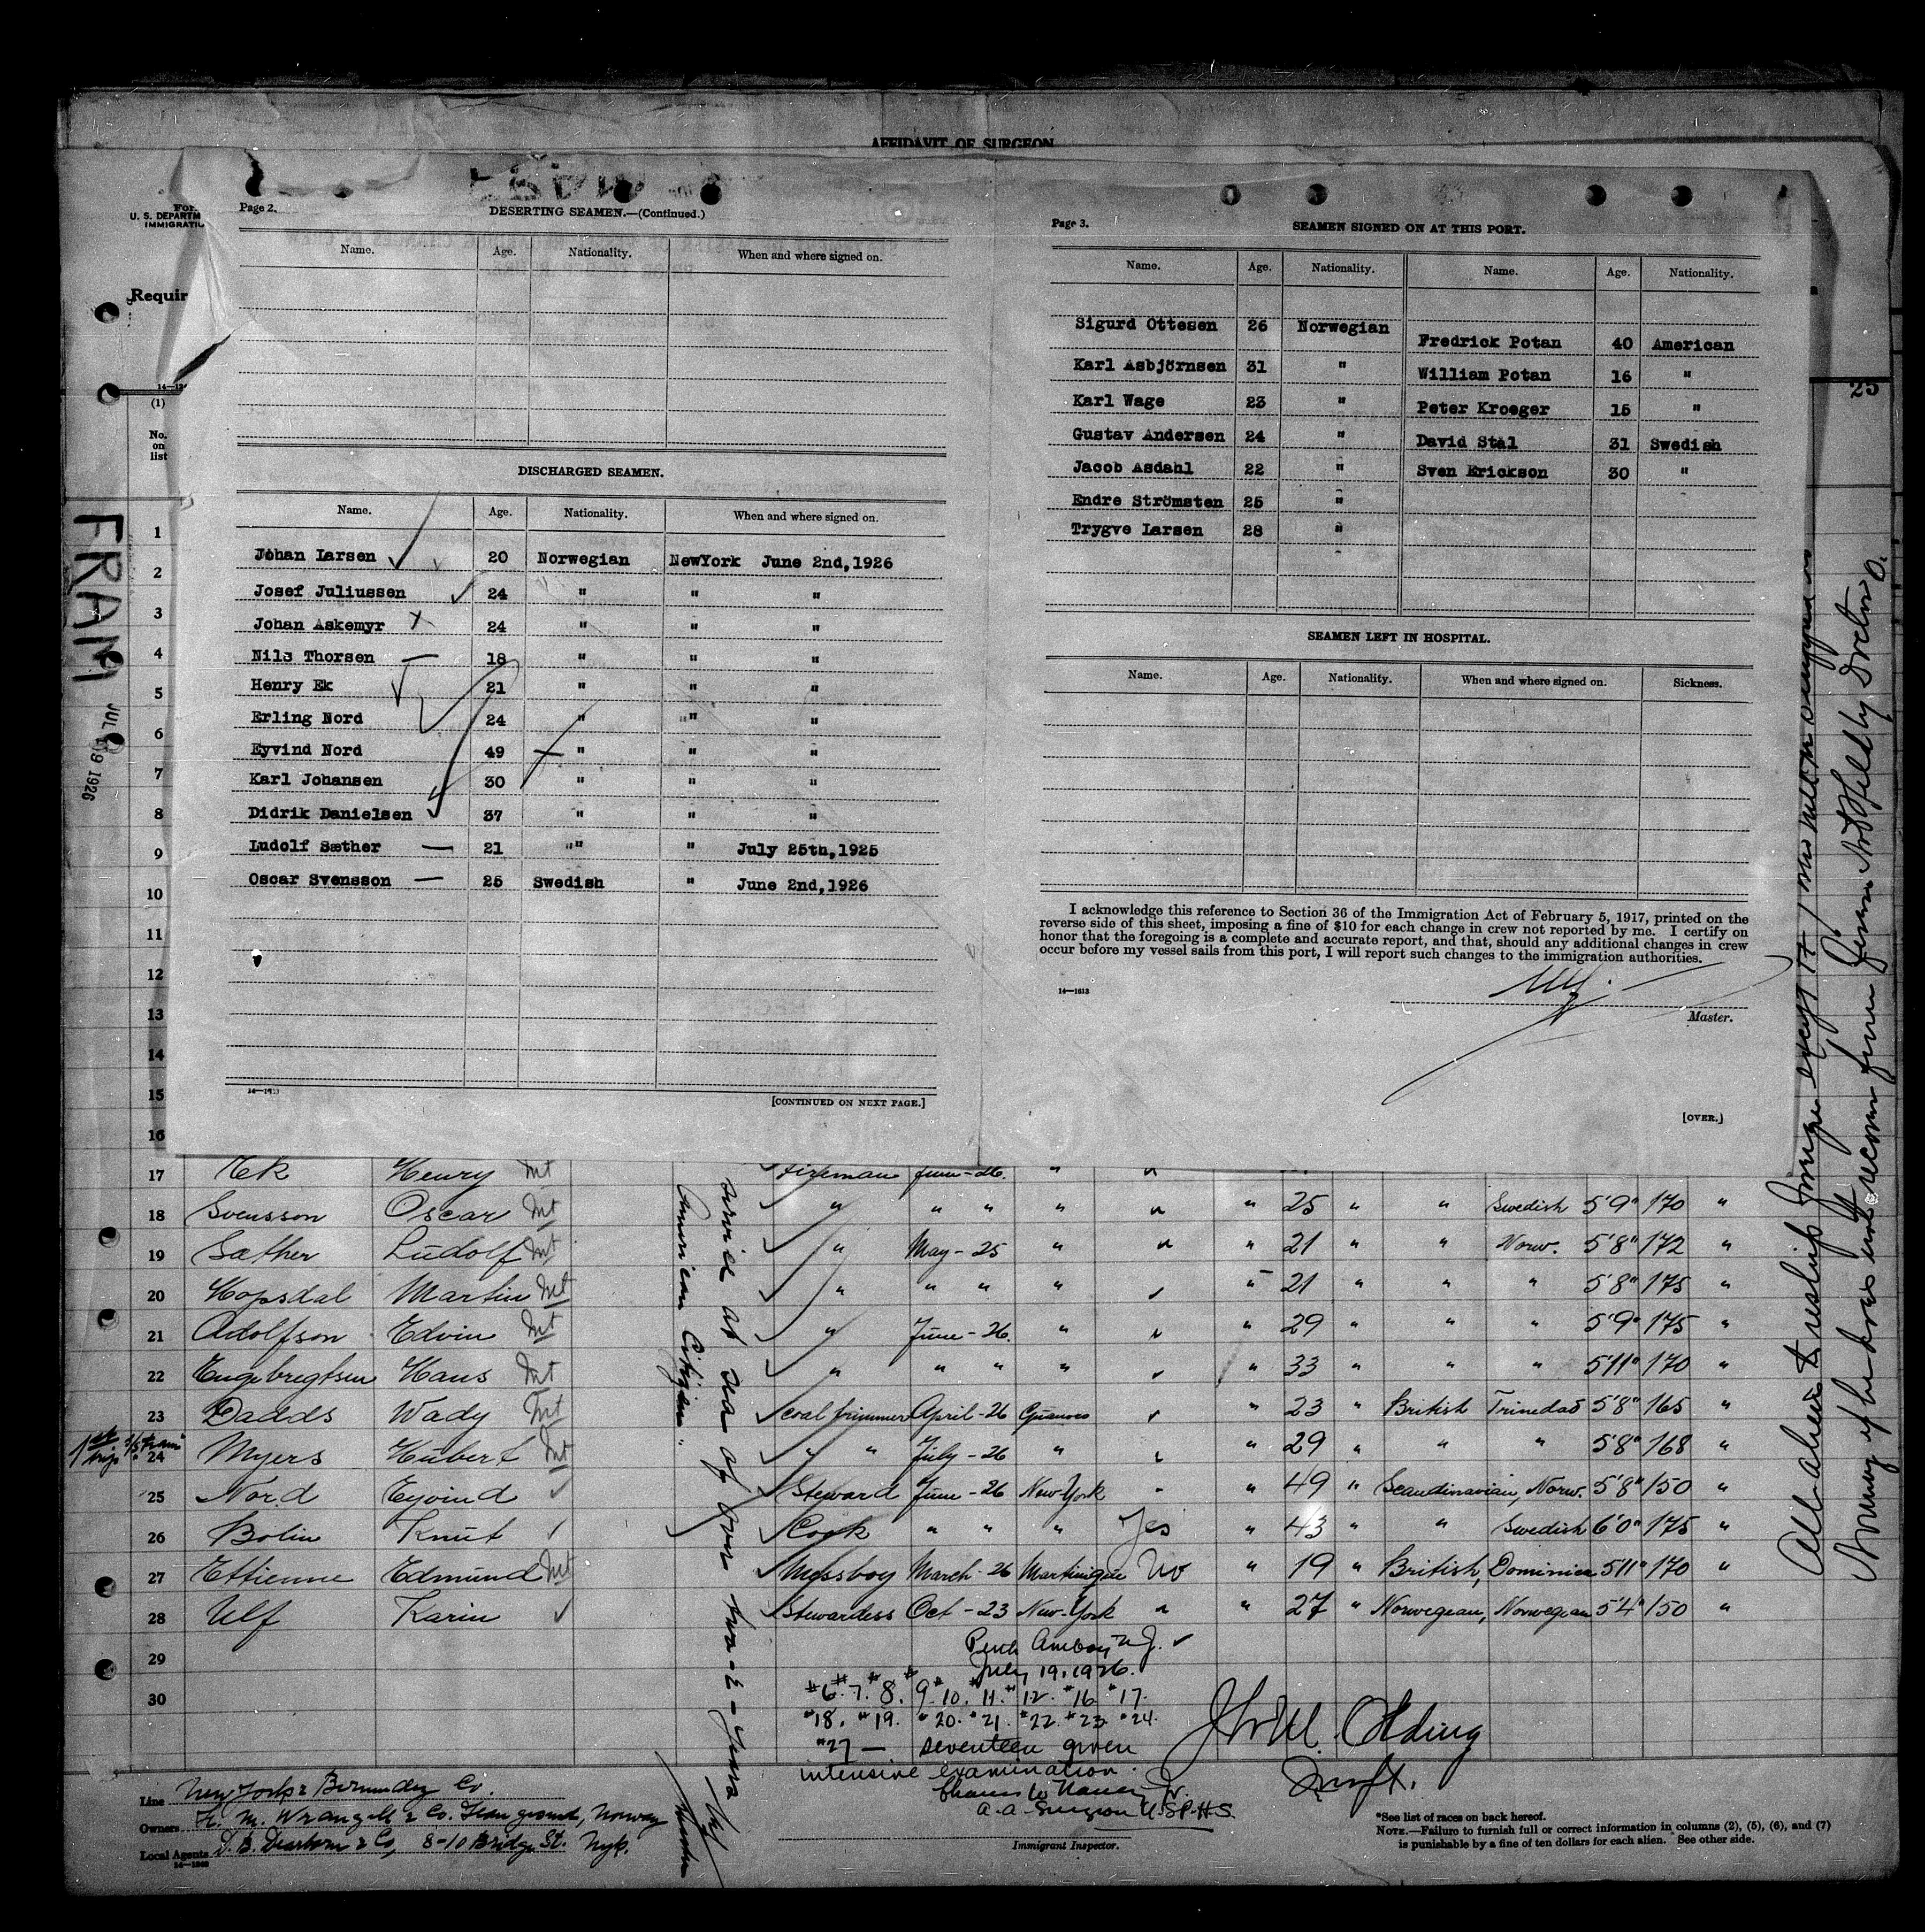 AFFIDAVIT OF SURGEON
U. S. DEPARTM
IMMIGRATIO
Requir
(1)
No. on list
25
FRAM
JUL 19 1926
Page 2.
DESERTING SEAMEN.—(Continued.)
Name. Age. Nationality. When and where signed on.
DISCHARGED SEAMEN.
Name. Age. Nationality. When and where signed on.
Johan Larsen 20 Norwegian NewYork June 2nd,1926
Josef Juliussen 24 " " "
Johan Askemyr 24 " " "
Nils Thorsen 18 " " "
Henry Ek 21 " " "
Erling Nord 24 " " "
Eyvind Nord 49 " " "
Karl Johansen 30 " " "
Didrik Danielsen 37 " " "
Ludolf Sæther 21 " " July 25th,1925
Oscar Svensson 25 Swedish " June 2nd,1926
[CONTINUED ON NEXT PAGE.]
Page 3.
SEAMEN SIGNED ON AT THIS PORT.
Name. Age. Nationality. Name. Age. Nationality.
Sigurd Ottesen 26 Norwegian Fredrick Potan 40 American
Karl Asbjörnsen 31 " William Potan 16 "
Karl Wage 23 " Peter Kroeger 15 "
Gustav Andersen 24 " David Stål 31 Swedish
Jacob Asdahl 22 " Sven Erickson 30 "
Endre Strömsten 25 "
Trygve Larsen 28 "
SEAMEN LEFT IN HOSPITAL.
Name. Age. Nationality. When and where signed on. Sickness.
I acknowledge this reference to Section 36 of the Immigration Act of February 5, 1917, printed on the
reverse side of this sheet, imposing a fine of $10 for each change in crew not reported by me. I certify on
honor that the foregoing is a complete and accurate report, and that, should any additional changes in crew
occur before my vessel sails from this port, I will report such changes to the immigration authorities.
14—1613
Master.
[OVER.]
1
2
3
4
5
6
7
8
9
10
11
12
13
14
15
16
17 Ek Henry Mt Fireman June-26. " "
18 Svensson Oscar Mt " " " " " " 25 " " Swedish 5'9" 170 "
19 Sæther Ludolf Mt " May-25 " " " 21 " " Norw. 5'8" 172 "
20 Hopsdal Martin Mt " " " " " " 21 " " " 5'8" 175 "
21 Adolfson Edvin Mt " June-26. " " " 29 " " " 5'9" 175 "
22 Engebregtsen Hans Mt " " " " " " 33 " " " 5'11" 170 "
23 Dadds Wady Mt Coal trimmer April-26 Guanoco " " 23 " British Trinedad 5'8" 165 "
1st trip 24 Myers Hubert Mt " " July-26 " " " 29 " " " 5'8" 168 "
25 Nord Eyvind Steward June-26 New-York " " 49 " Scandinavian, Norw. 5'8" 150 "
26 Bolin Knut Cook " " " Yes " 43 " " Swedish 6'0" 175 "
27 Ettienne Edmund Mt Messboy March-26 Martinique No " 19 " British, Dominica 5'11" 170 "
28 Ulf Karin Stewardess Oct-23 New-York " " 27 " Norwegean, Norwegean 5'4" 150 "
29
30
service at sea of over two-2-years
American Citizen"
Perth Amboy N.J.
July 19, 1926.
#6. #7. #8. #9. #10. #11. #12. #16. #17.
#18. #19. #20. #21. #22. #23. #24.
#27 — seventeen given
intensive examination.
A. A. Surgeon U.S.P.H.S.
Immigrant Inspector.
Line New York & Bermudez Co.
Owners H. M. Wrangell & Co. Haugesund, Norway
Local Agents D. B. Dearborn & Co, 8-10 Bridge St. Nyk.
*See list of races on back hereof.
NOTE.—Failure to furnish full or correct information in columns (2), (5), (6), and (7)
is punishable by a fine of ten dollars for each alien. See other side.